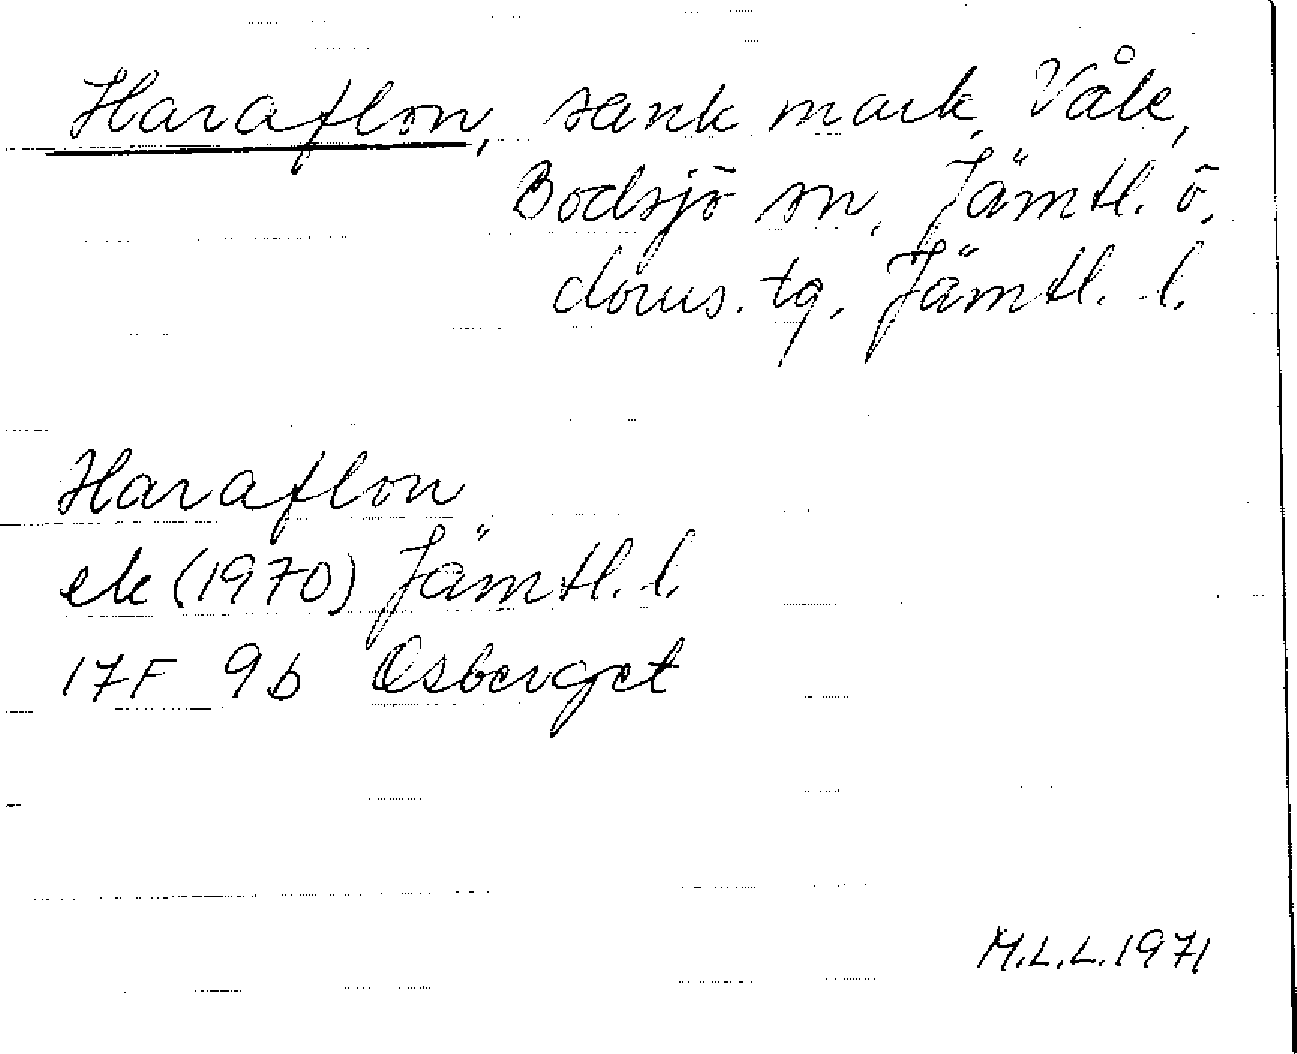 Haraflon, sank mark, Våle,
Bodsjö sn, Jämtl. ö.
doms. tg, Jämtl. l.
Haraflon
ek (1970) Jämtl. l.
17F 9b Osberget
M.L.L. 1971